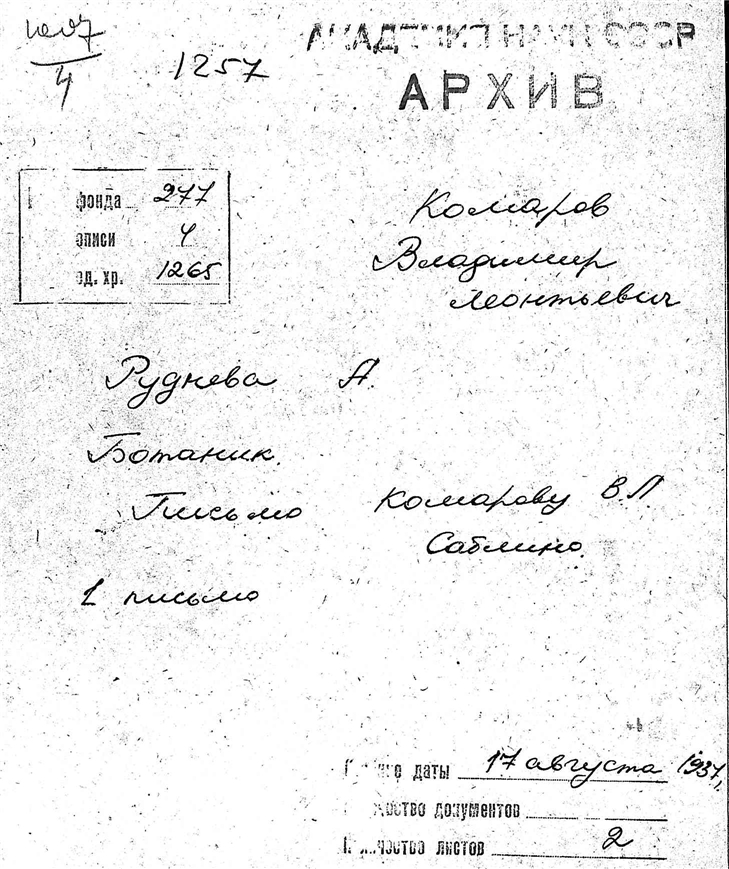 1257
АКАДЕМИЯ НАУК СССР
АРХИВ
фонда 277
описи 4
ед. хр. 1265
Комаров
Владимир
Леонтьевич
Руднева А.
Ботаник.
Письмо Комарову В.Л.
Саблино.
1 письмо
даты 17 августа 1937,
документов
листов 2